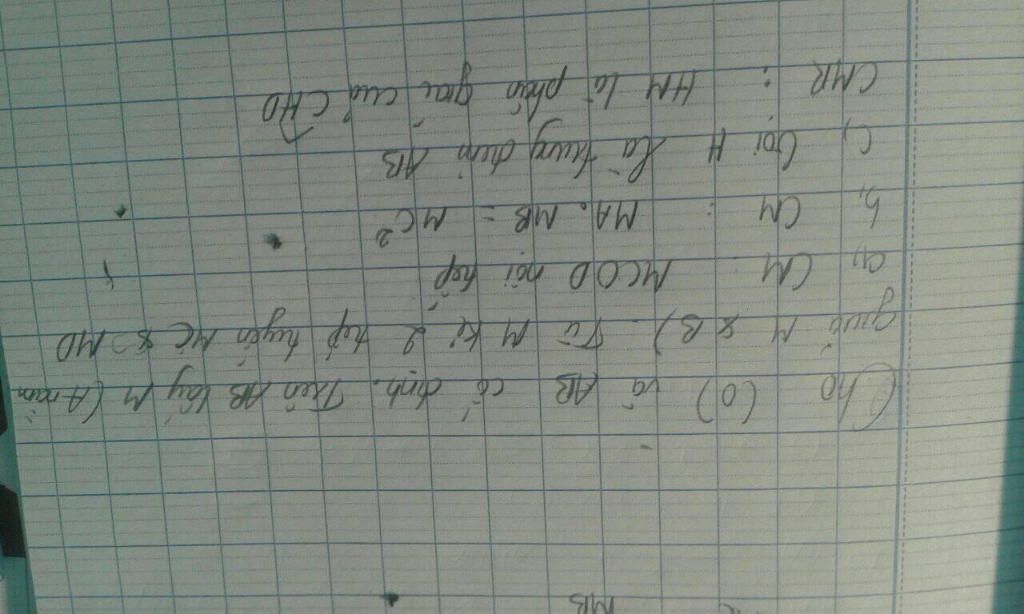 Cho (O) và AB cố định. Trên AB lấy M (A nằm
giữa M & B). Từ M kẻ 2 tiếp tuyến MC & MD
a, CM : MCOD nội tiếp
b, CM : MA. MB = MC²
c, Gọi H là trung điểm AB
CMR : HM là phân giác của CHD
MB